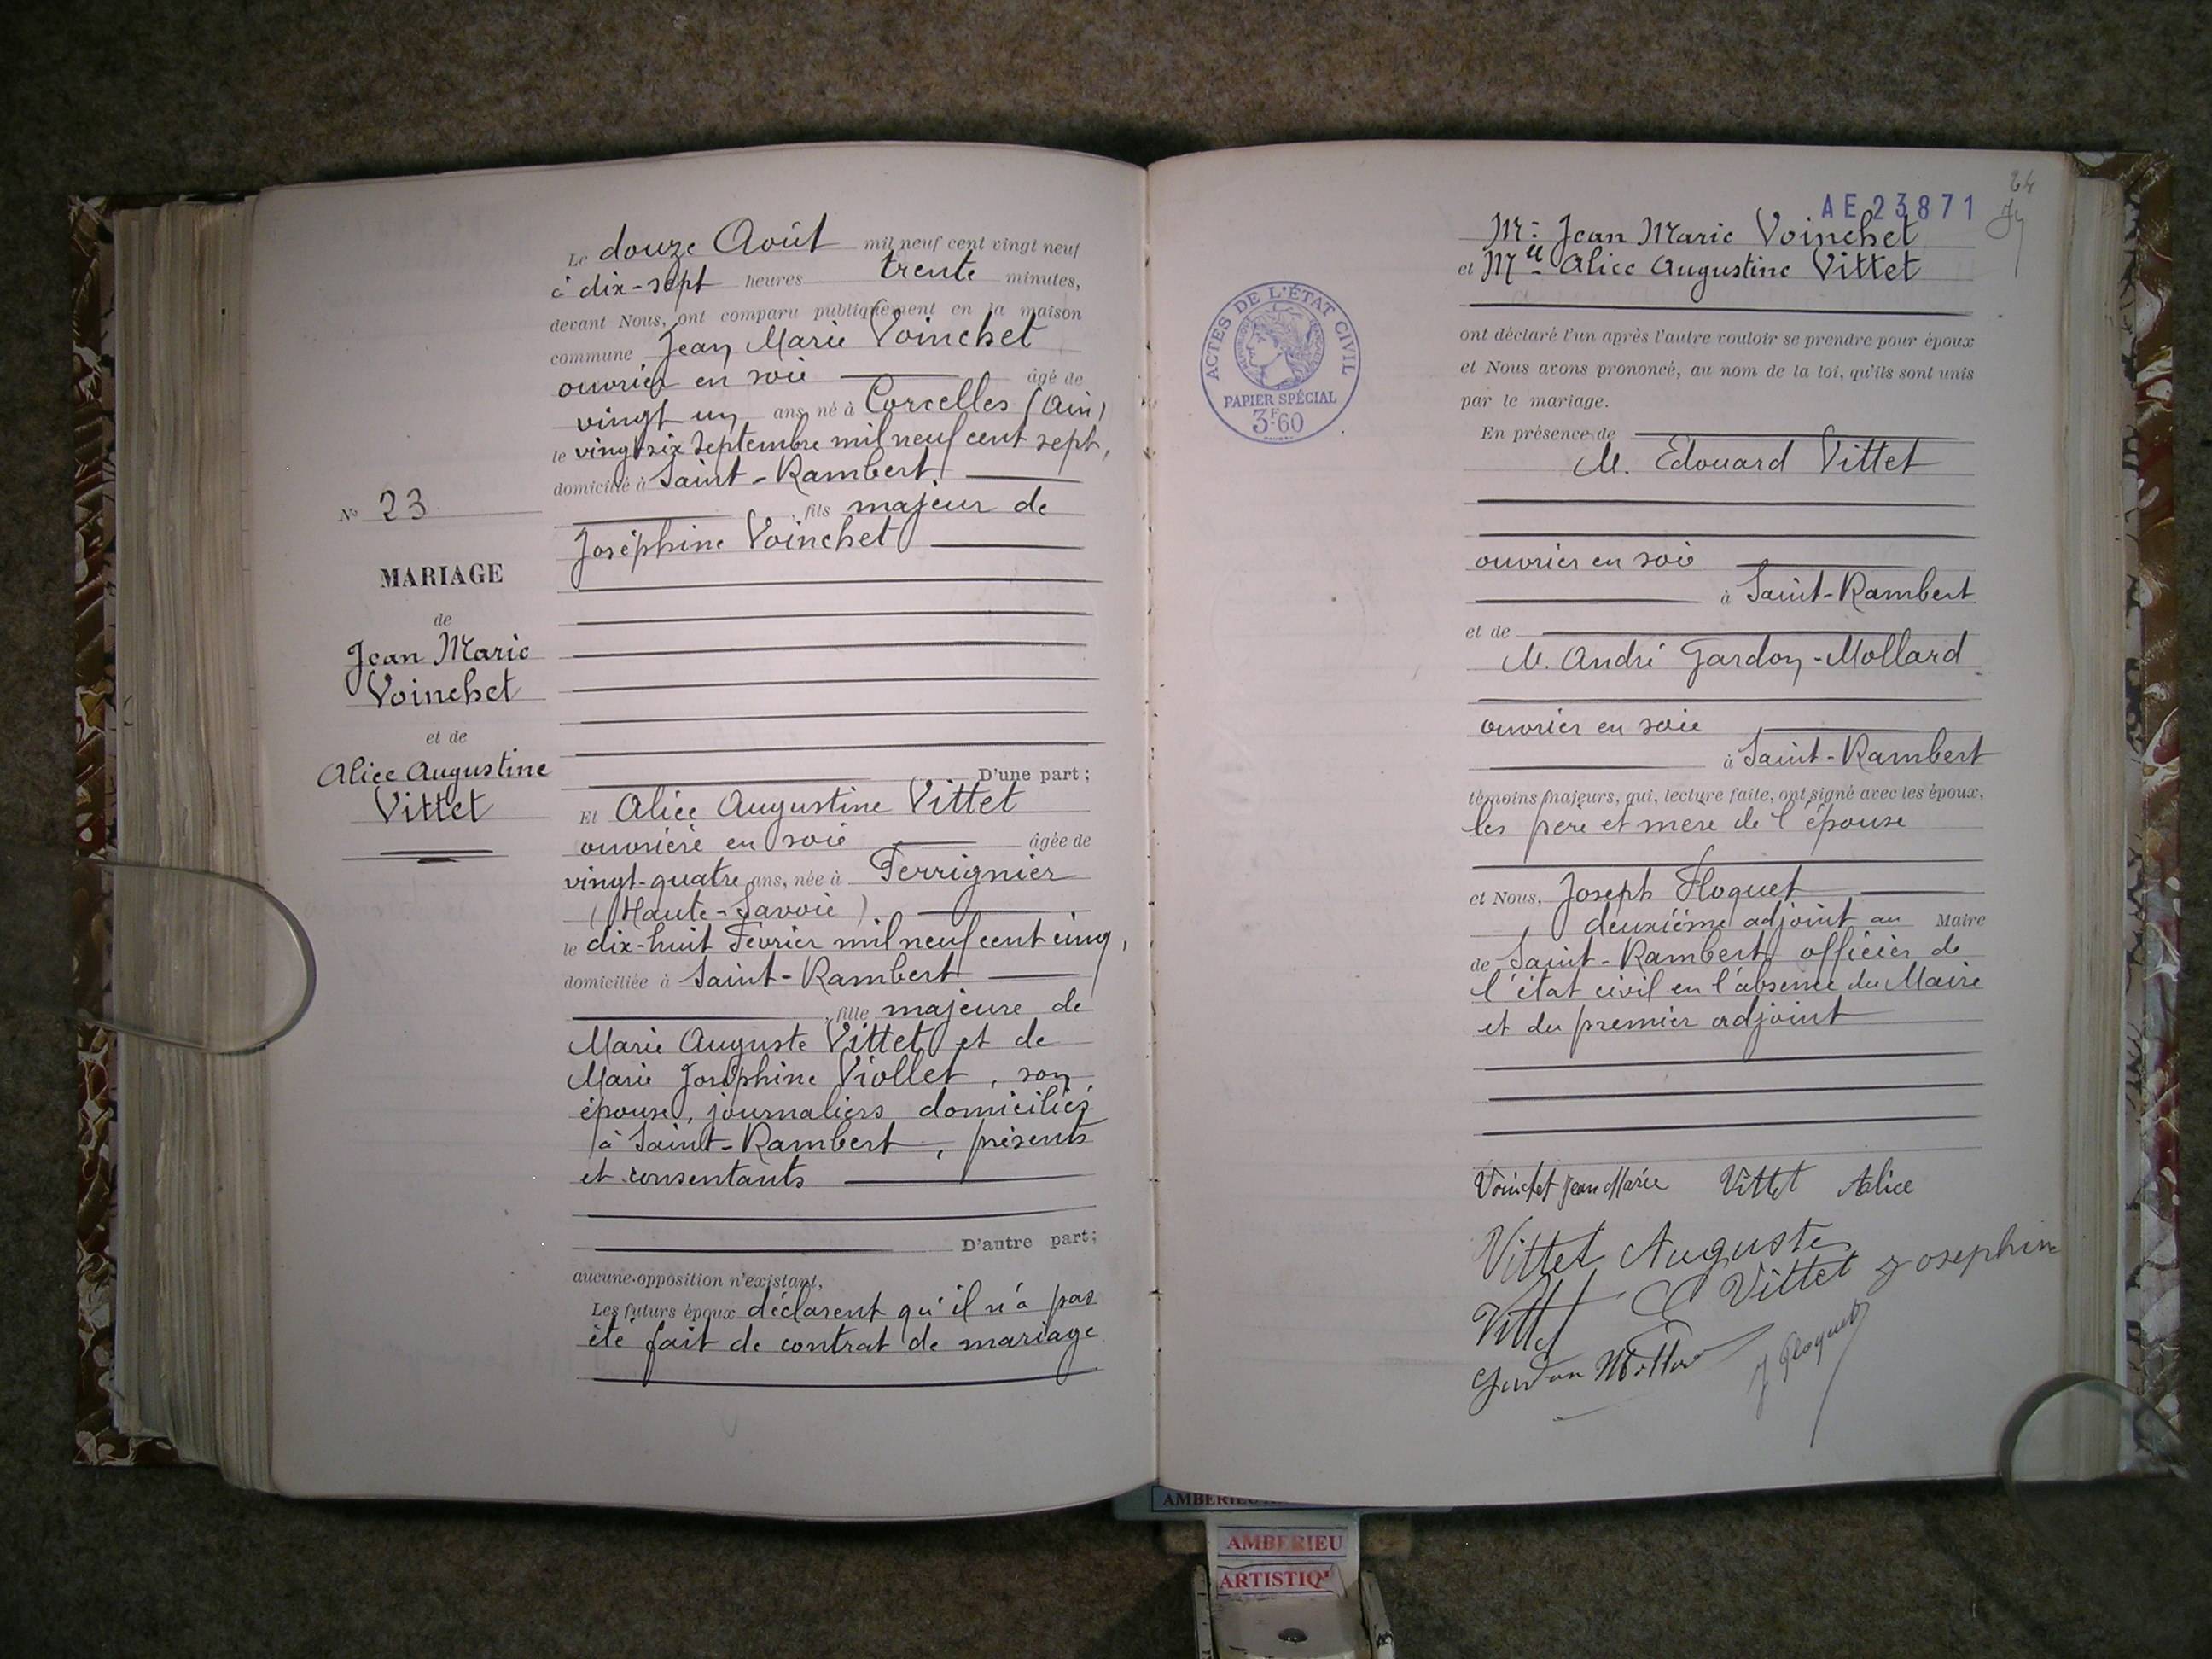 Le douze Août mil neuf cent vingt neuf
à dix-sept heures trente minutes,
devant Nous, ont comparu publiquement en la maison
commune Jean Marie Voinchet
ouvrier en soie âgé de
vingt un ans, né à Corcelles (Ain)
le vingt six Septembre mil neuf cent sept,
domicilié à Saint-Rambert
fils majeur de
Joséphine Voinchet
D'une part;
Et Alice Augustine Vittet
ouvrière en soie âgée de
vingt-quatre ans, née à Perrignier
(Haute-Savoie)
le dix-huit Février mil neuf cent cinq,
domiciliée à Saint-Rambert
fille majeure de
Marie Auguste Vittet et de
Marie Joséphine Viollet, son
épouse, journaliers domiciliés
à Saint-Rambert, présents
et consentants
D'autre part;
aucune opposition n'existant,
Les futurs époux déclarent qu'il n'a pas
été fait de contrat de mariage
No 23
MARIAGE
de
Jean Marie
Voinchet
et de
Alice Augustine
Vittet
AE 23871
24
M. Jean Marie Voinchet
et Mlle Alice Augustine Vittet
ont déclaré l'un après l'autre vouloir se prendre pour époux
et Nous avons prononcé, au nom de la loi, qu'ils sont unis
par le mariage.
En présence de
M. Edouard Vittet
ouvrier en soie
à Saint-Rambert
et de
M. André Gardon-Mollard
ouvrier en soie
à Saint-Rambert
témoins majeurs, qui, lecture faite, ont signé avec les époux,
les père et mère de l'épouse
et Nous, Joseph Floquet
deuxième adjoint au Maire
de Saint-Rambert officier de
l'état civil en l'absence du Maire
et du premier adjoint
Voinchet Jean Marie Vittet Alice
Vittet Auguste
Vittet E Vittet Josephine
Gardon Mollard J Floquet
ACTES DE L'ÉTAT CIVIL
RÉPUBLIQUE FRANÇAISE
PAPIER SPÉCIAL
3F60
AMBERIEU
AMBERIEU
ARTISTIQ